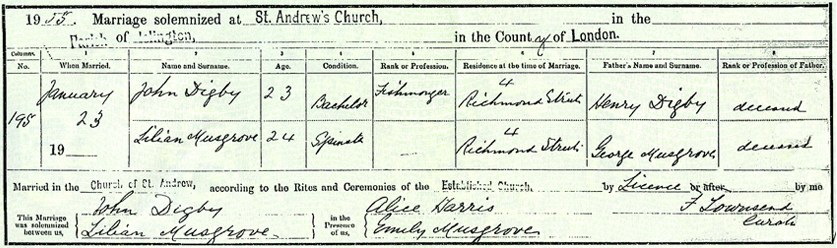 1955. Marriage solemnized at St. Andrew's Church, in the
Parish of Islington, in the County of London.
Columns. 1 2 3 4 5 6 7 8
No. When Married. Name and Surname. Age. Condition. Rank or Profession. Residence at the time of Marriage. Father's Name and Surname. Rank or Profession of Father.
195 January 23 19 John Digby 23 Bachelor Fishmonger 4 Richmond Street Henry Digby deceased
Lilian Musgrove 24 Spinster — 4 Richmond Street George Musgrove deceased
Married in the Church of St. Andrew, according to the Rites and Ceremonies of the Established Church, by Licence or after by me
This Marriage was solemnized between us, John Digby in the Presence of us, Alice Harris F Townsend
Lilian Musgrove Emily Musgrove Curate